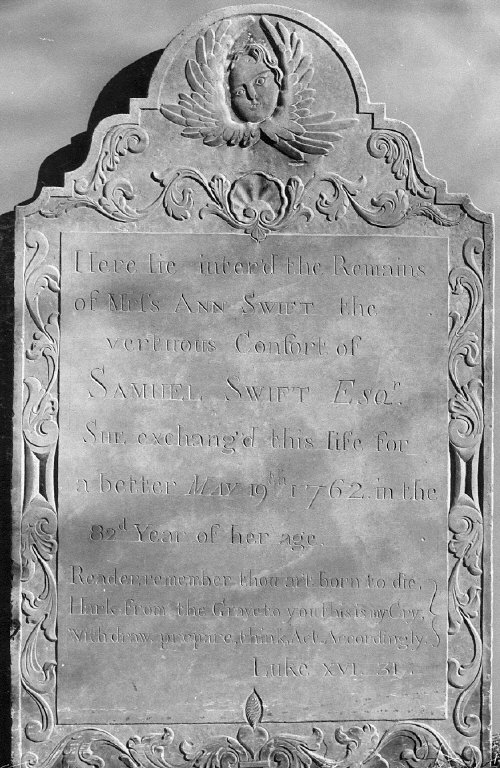 Here lie inter'd the Remains
of Mrſs ANN SWIFT the
vertuous Conſort of
SAMUEL SWIFT Esqr.
SHE exchang'd this life for
a better MAY 19th 1762. in the
82d Year of her age.
Reader, remember thou art born to die,
Hark from the Grave to you this is my Cry,
withdraw, prepare, think, Act Accordingly.
Luke XVI. 31.